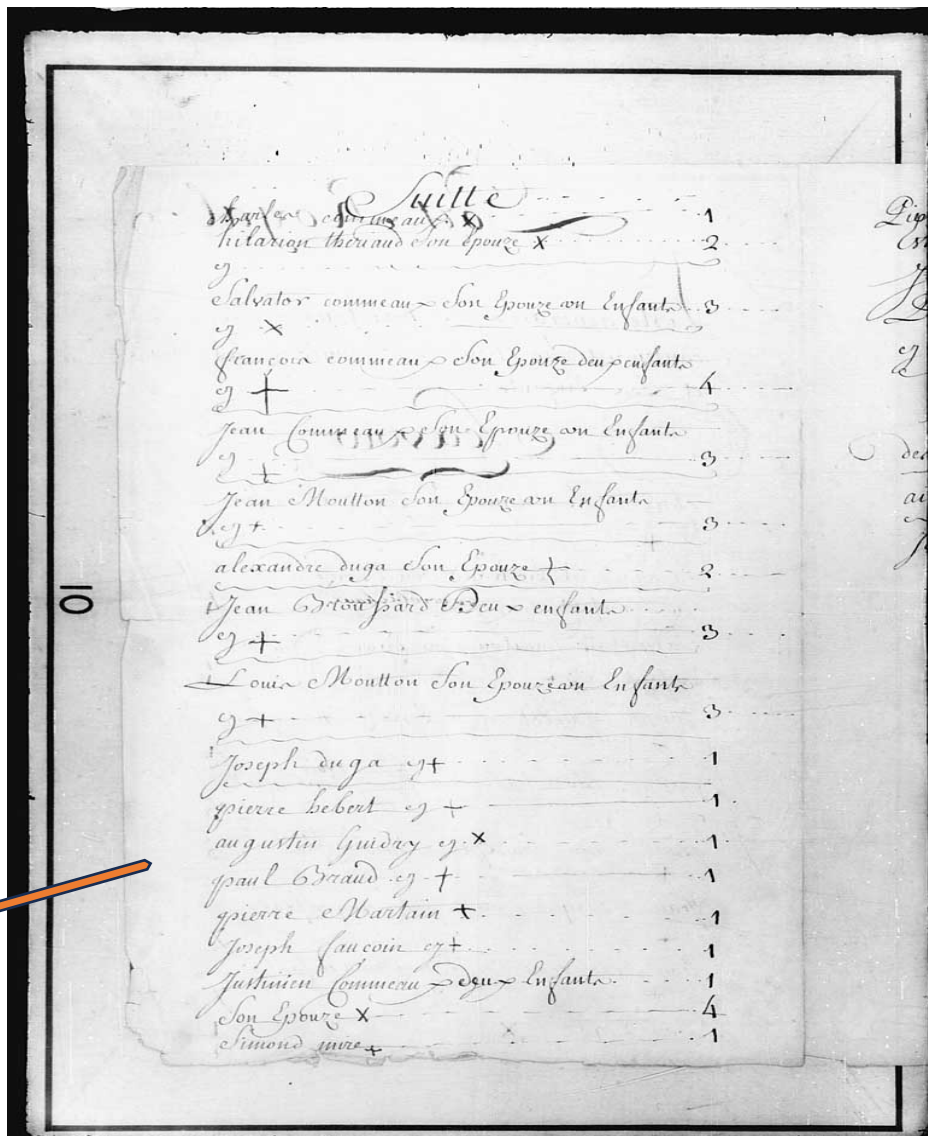 Suitte
Charles commeaux x 1
hilarion theriaud Son Epouze x 2
cy
Salvator commeaux Son Epouze un Enfants 3
cy x
françois commeaux Son Epouze deux enfants
cy + 4
Jean Commeaux Son Epouze un Enfants
cy + 3
Jean Moutton Son Epouze un Enfants
cy + 3
alexandre duga Son Epouze + 2
+ Jean Broussard Deux enfants
cy + 3
Louis Moutton Son Epouze un Enfants
cy + 3
Joseph duga cy + 1
pierre hebert cy + 1
augustin Guidry cy x 1
paul Braud cy + 1
pierre Martain + 1
Joseph saucoin cy + 1
Justinien Commeau deux Enfants 1
Son Epouze x 4
Simond mire + 1
10